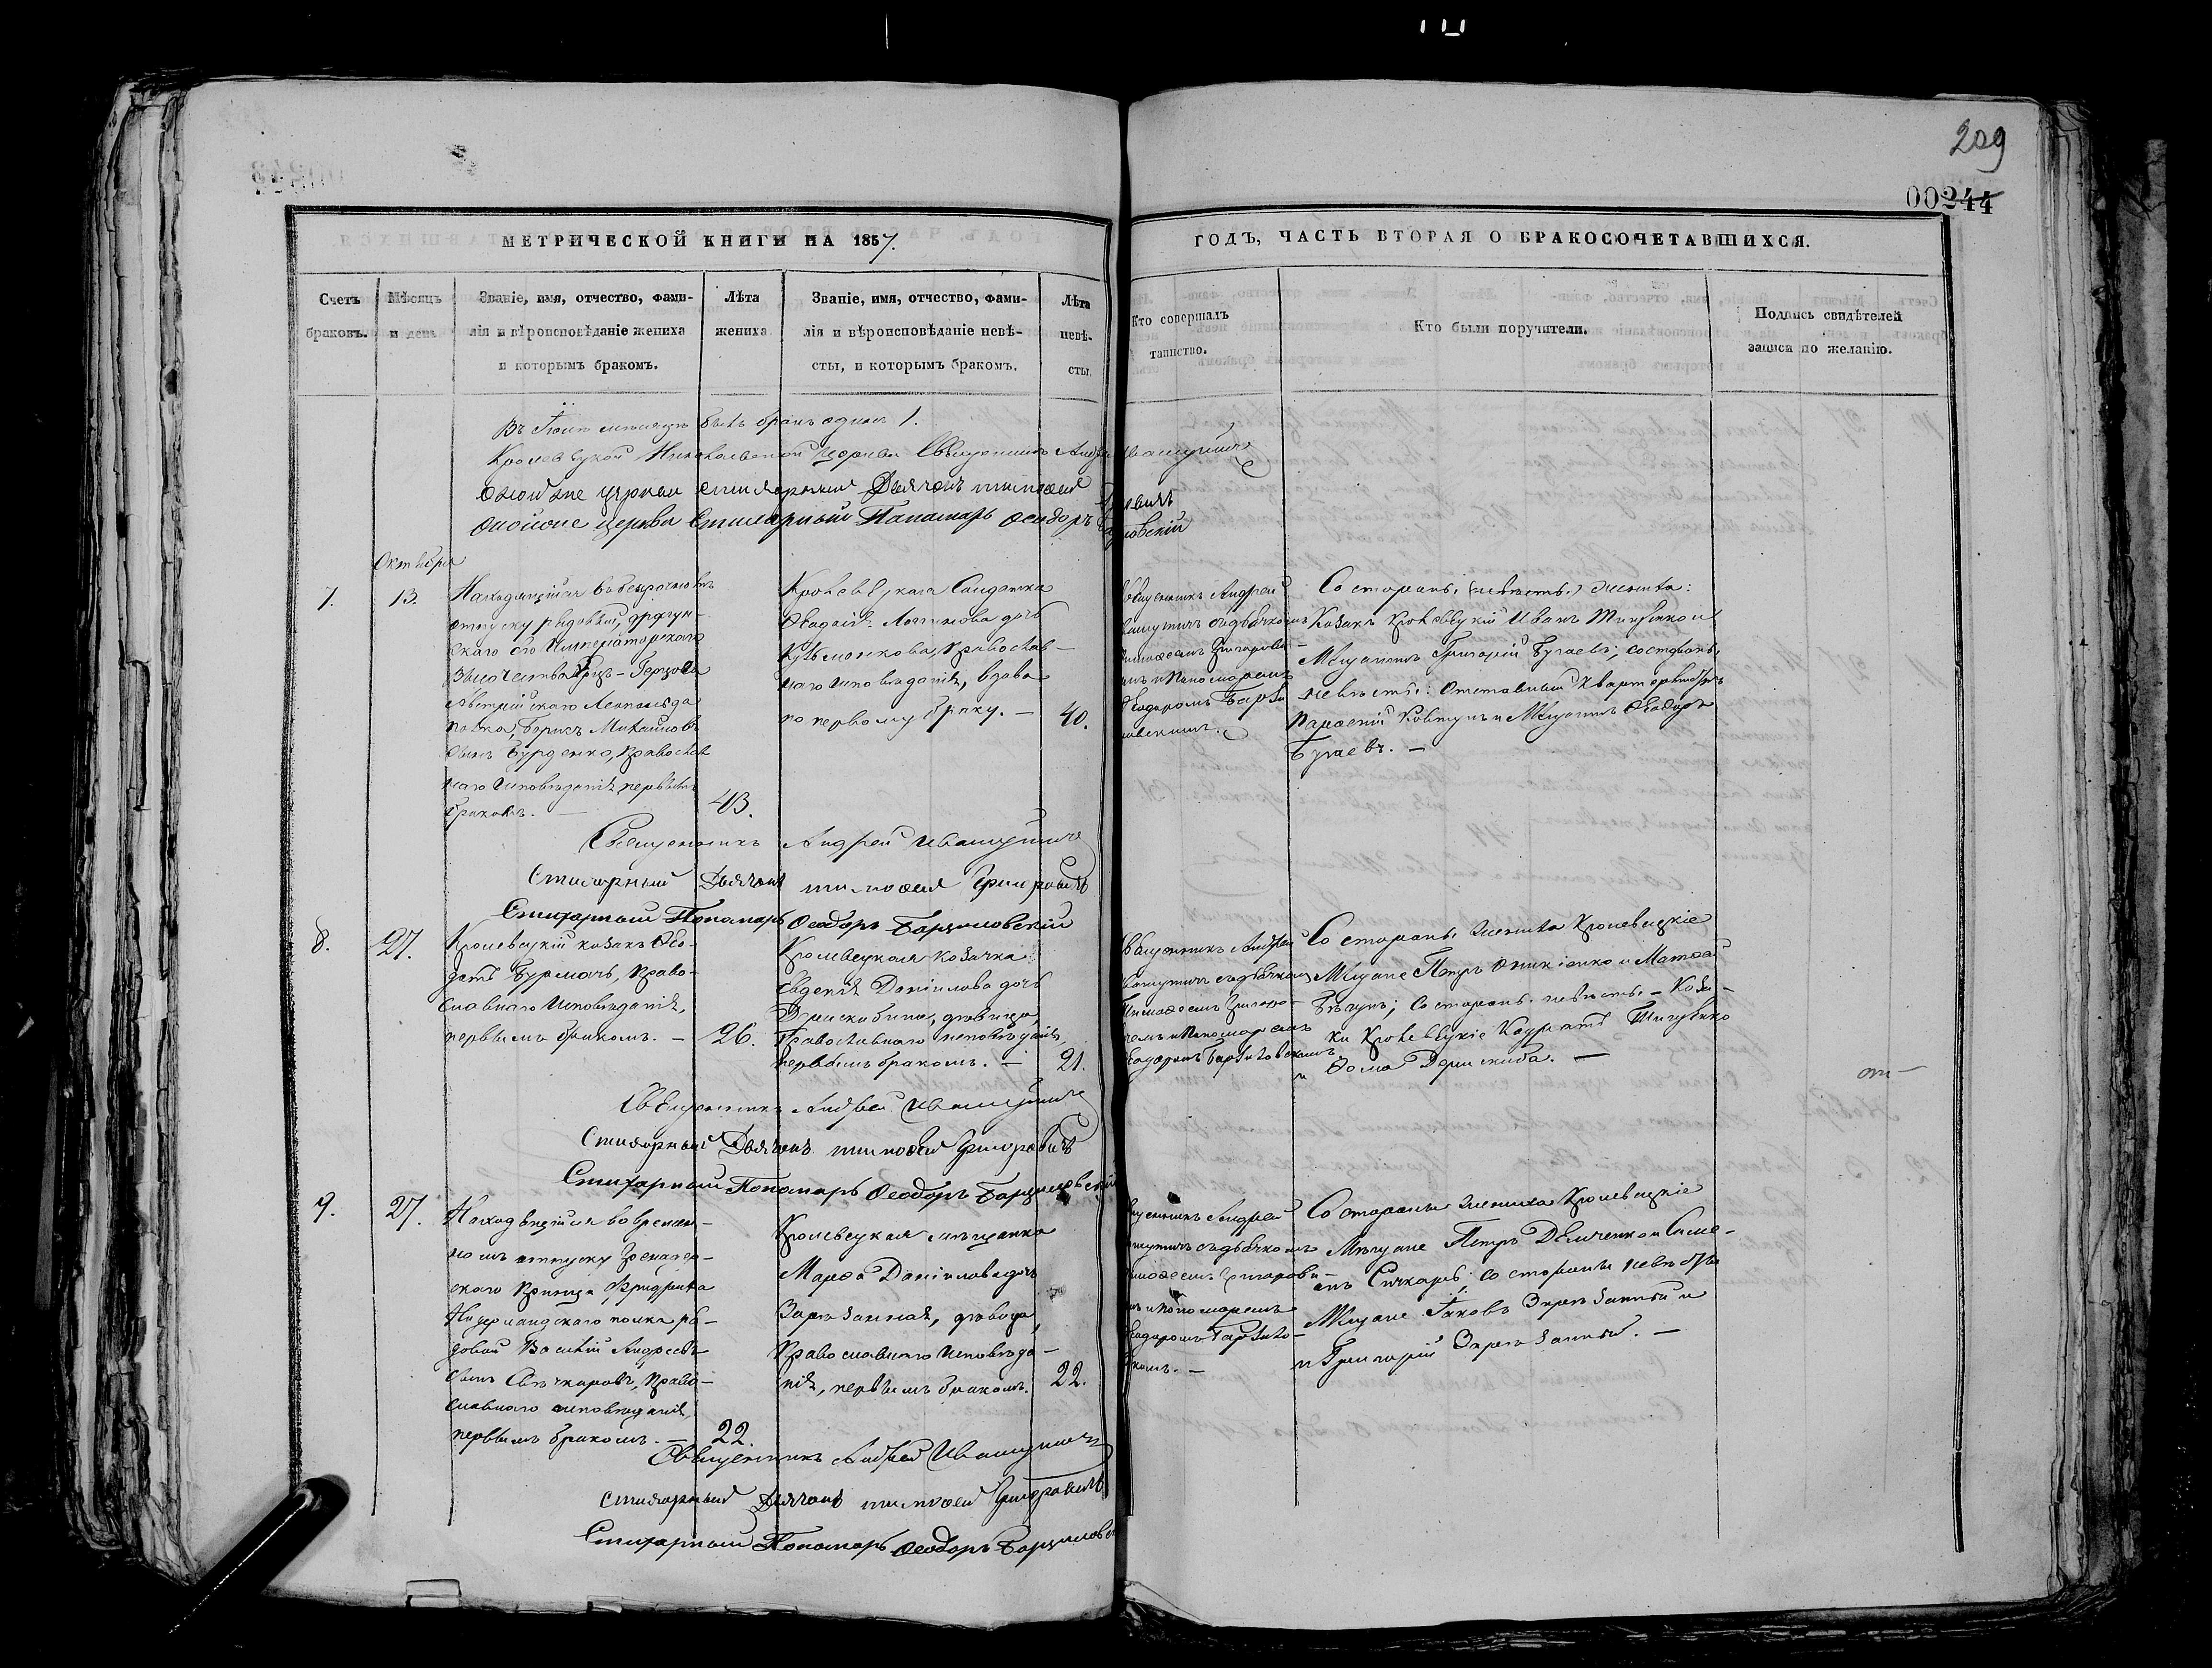 209
00244
МЕТРИЧЕСКОЙ КНИГИ НА 1857.
ГОДЪ, ЧАСТЬ ВТОРАЯ О БРАКОСОЧЕТАВШИХСЯ.
Счетъ
браковъ.
Мѣсяцъ
и день
Званіе, имя, отчество, фами-
лія и вѣроисповѣданіе жениха
и которымъ бракомъ.
Лѣта
жениха
Званіе, имя, отчество, фами-
лія и вѣроисповѣданіе невѣ-
сты, и которымъ бракомъ.
Лѣта
невѣ-
сты.
Кто совершалъ
таинство.
Кто были поручители.
Подпись свидѣтелей
записи по желанію.
Въ мѣсяцѣ былъ бракъ одинъ 1.
Кролевецкой Николаевской Церкви Священникъ Андрей Ивашутичь
церкви стихарный Дьячокъ Тимофей
церкви Стихарный Пономарь Ѳеодоръ
Октября
7.
13.
Находящійся въ безсрочномъ
отпуску рядовый,
скаго его Императорскаго
Высочества Эрцъ-Герцога
Австрійскаго Леопольда
полка, Борисъ Михайловъ
сынъ Бурденко, Православ
наго исповѣданія первымъ
бракомъ. —
43.
Кролевецкая Солдатка
дочь
Кузьменкова, Православ-
наго исповѣданія, вдова
по первому браку. —
40.
Священникъ Андрей
Ивашутичъ съ дьячкомъ
Тимофеемъ Григорови-
чемъ и Пономаремъ
Ѳеодоромъ Барзи
ловскимъ.
Со стороны жениха:
Козакъ Кролевецкій Иванъ и
Мѣщанинъ Григорій Бугаевъ; со стороны
невѣсты: Отставный
Ковтунъ и Мѣщанинъ Ѳеодоръ
Бугаевъ. —
Священникъ Андрей Ивашутичь
Стихарный Дьячокъ Тимофей Григоровичъ
Стихарный Пономарь Ѳеодоръ Барзиловскій
8.
27.
Кролевецкій козакъ Ѳео-
датъ Бурмачъ, Право-
славнаго исповѣданія,
первымъ бракомъ. —
26.
Кролевецкая козачка
Евдокія Даніилова дочь
Дерискибина, дѣвица,
Православнаго исповѣданія,
первымъ бракомъ. —
21.
Священникъ Андрей
Ивашутичъ съ дьячкомъ
Тимофеемъ Григоро-
вичемъ и Пономаремъ
Ѳеодоромъ Барзиловскимъ.
Со стороны жениха Кролевецкіе
Мѣщане Петръ Оникіенко и Матфей
Бѣгунъ; со стороны невѣсты — Коза-
ки Кролевецкіе Кодратъ
и Ѳома Дерискиба. —
Священникъ Андрей Ивашутичь
Стихарный Дьячокъ Тимофей Григоровичъ
Стихарный Пономарь Ѳеодоръ Барзиловскій
9.
27.
Находящійся во времен-
номъ отпуску Гренадер-
скаго Принца Фридриха
Нидерландскаго полка ря-
довой Василій Андреевъ
сынъ Сничкаровъ, Право-
славнаго исповѣданія,
первымъ бракомъ. —
22.
Кролевецкая мѣщанка
Марѳа Даніилова дочь
дѣвица,
Православнаго исповѣда-
нія, первымъ бракомъ.
22.
Священникъ Андрей
Ивашутичъ съ дьячкомъ
Тимофеемъ Григорови-
чемъ и пономаремъ
Ѳеодоромъ Барзило-
вскимъ. —
Со стороны жениха Кролевецкіе
Мѣщане Петръ Демченко и Симе-
онъ Сничкарь; со стороны невѣсты
Мѣщане Іаковъ и
и Григорій
Священникъ Андрей Ивашутичь
Стихарный Дьячокъ Тимофей Григоровичъ
Стихарный Пономарь Ѳеодоръ Барзиловскій